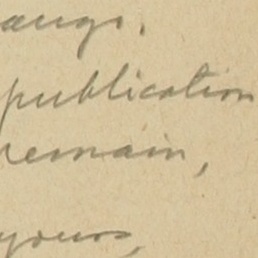 publication
remain,
yours,